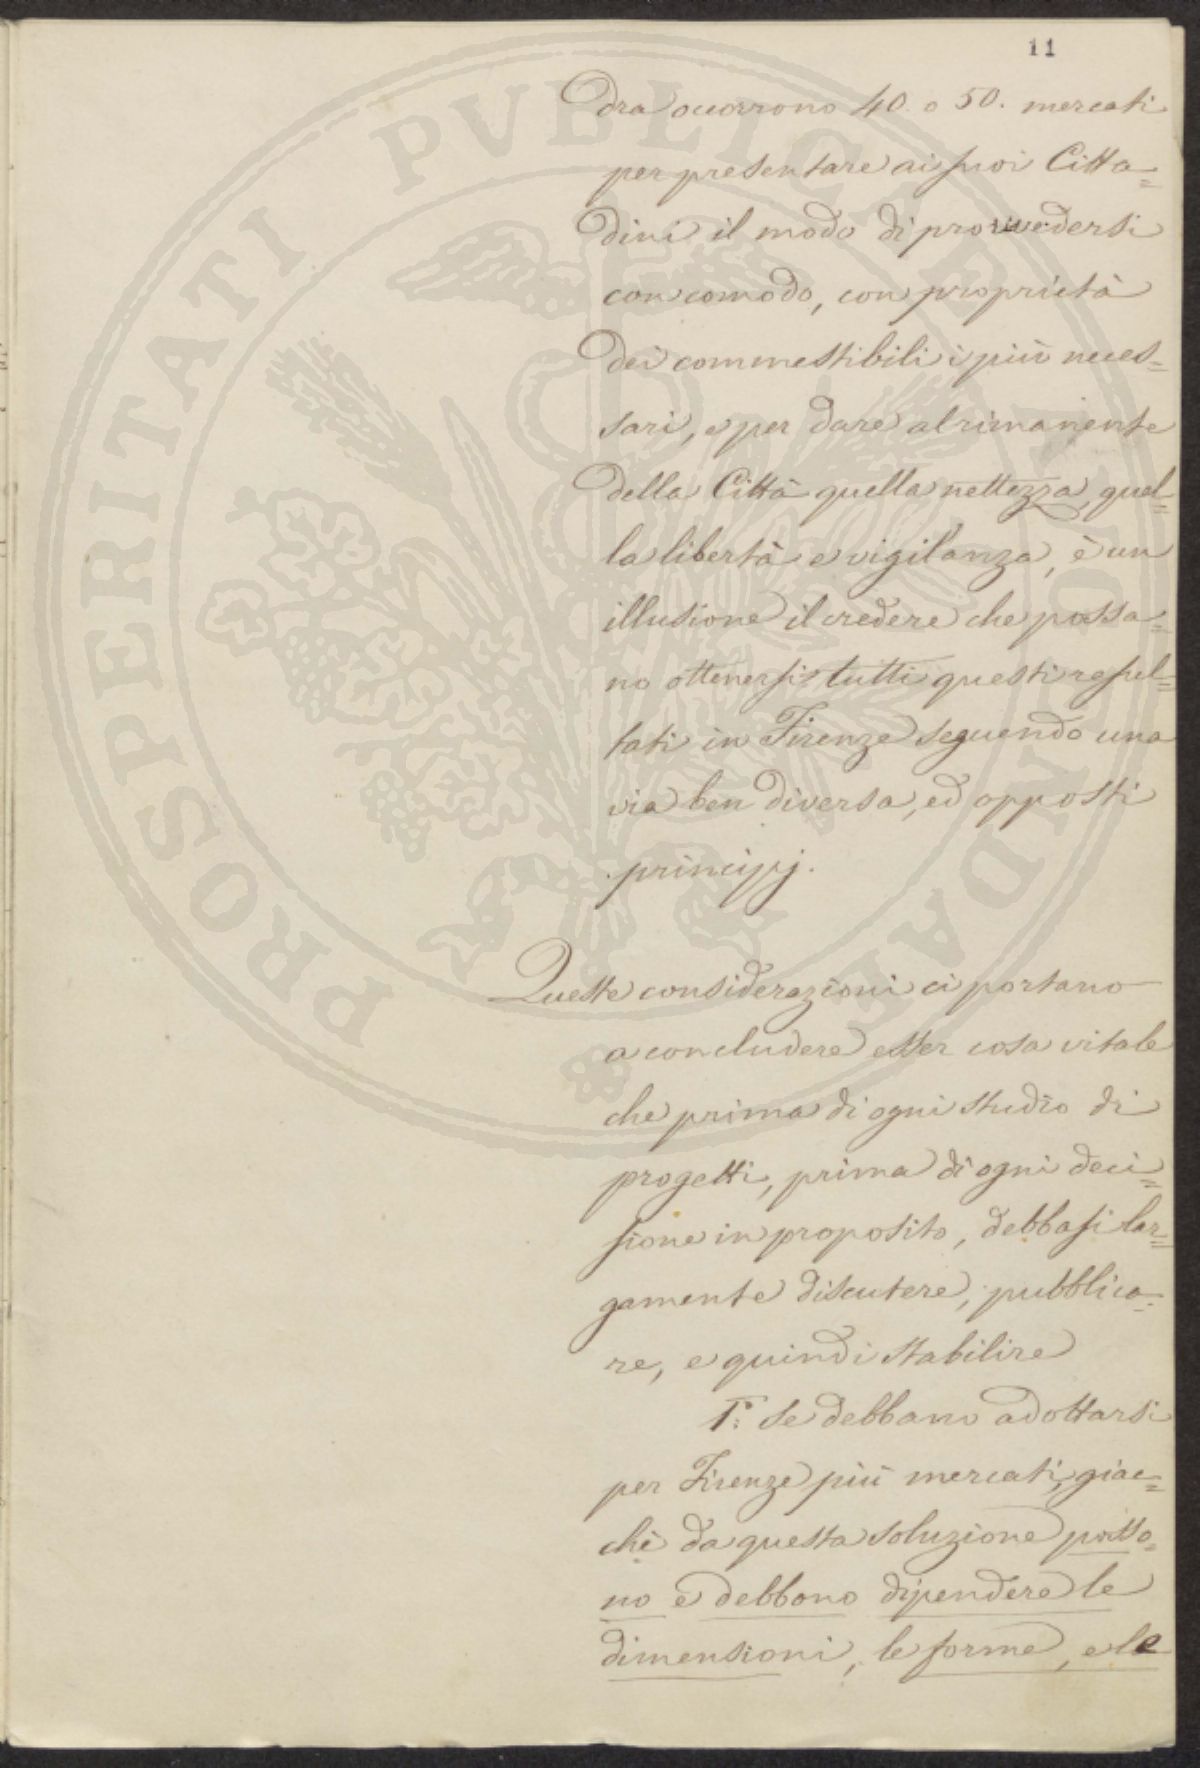 11
dra occorrono 40. o 50. mercati
per presentare ai suoi Citta=
dini il modo di provvedersi
con comodo, con proprietà
dei commestibili i più neces=
sari, e per dare al rimanente
della Città quella nettezza, quel=
la libertà e vigilanza, è un
illusione il credere che possa=
no ottenersi tutti questi resul=
tati in Firenze seguendo una
via ben diversa, ed opposti
principj.
Queste considerazioni ci portano
a concludere esser cosa vitale
che prima di ogni studio di
progetti, prima di ogni deci=
sione in proposito, debbasi lar=
gamente discutere, pubblica=
re, e quindi stabilire
1°: Se debbano adottarsi
per Firenze più mercati, giac=
chè da questa soluzione posso=
no e debbono dipendere le
dimensioni, le forme, e le
PROSPERITATI PVBLICAE AVGENDAE